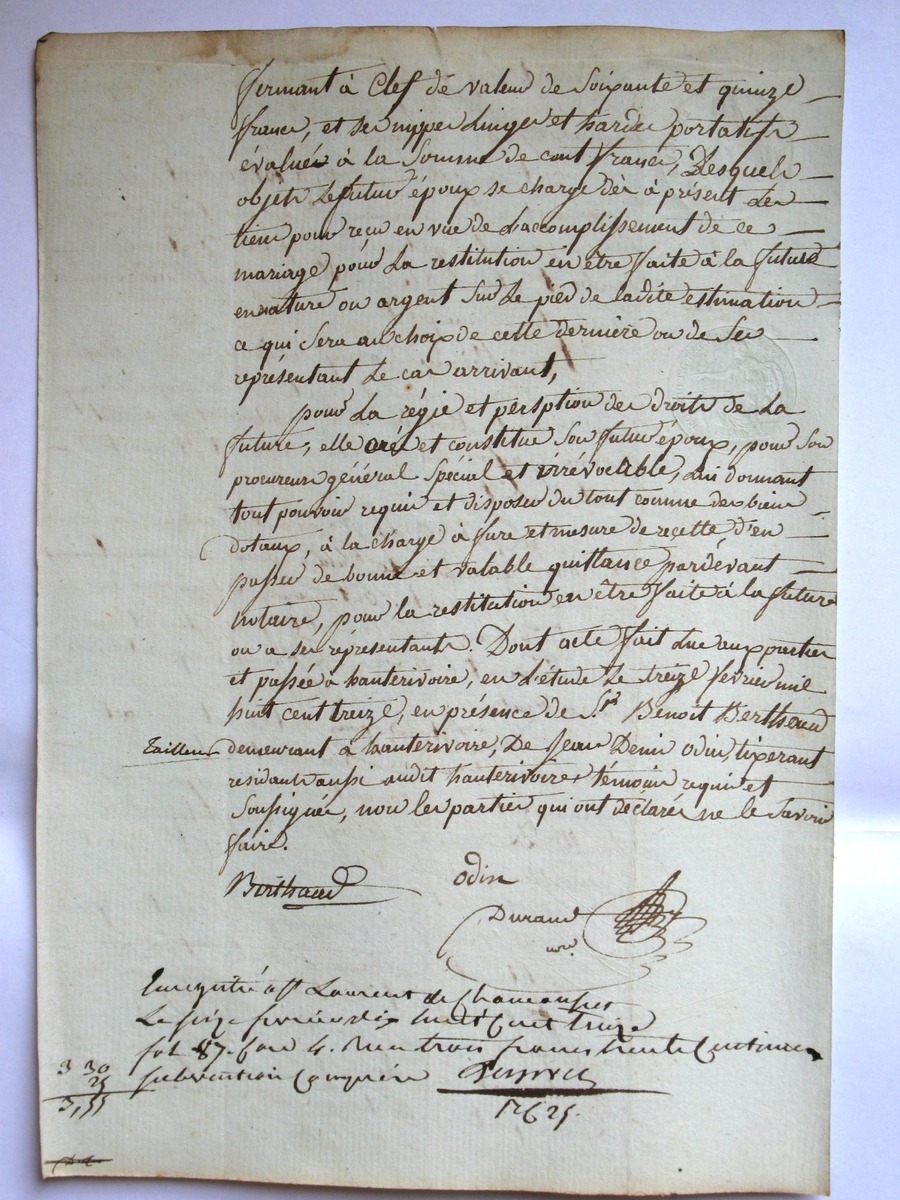 fermant à Clef de valeur de Soixante et quinze
francs, et ses nippes Linges et hardes portatifs
évalués à la Somme de cent francs, Desquels
objets Le futur époux se charge dès à présent Les
tiens pour reçu en vue de L'accomplissement de ce
mariage pour La restitution en être faite à la future
en nature ou argent Sur Le pied de ladite estimation
ce qui Sera au choix de cette dernière ou de Ses
représentant Le cas arrivant,
pour La régie et perseption des droits de La
future, elle crée et constitue Son futur époux, pour Son
procureur général Spécial et irrévocable, Lui donnant
tout pouvoir requis et disposer du tout comme des biens
dotaux, à la charge à fure et mesure de recette, d'en
passer de bonne et valable quittance pardevant
notaire, pour la restitution en être faite à la future
ou a ses représentants. Dont acte fait Lue aux parties
et passée à hauterivoire, en L'étude Le treize février mil
huit cent treize, en présence de S.r Benoit Berthaud
Tailleur demeurant à hauterivoire, De Jean Denis Odin, tixerant
residants aussi audit hauterivoire témoins requis et
Soussignés, non les parties qui ont déclarés ne le Savoir
faire.
Berthaud Odin
Durand
nore
Enregistré à St Laurent de Chamousset
Le seize février dix huit Cent treize
fol 87. Case 4. Reçu trois francs trente Centimes
subvention Comprise
3 30
25
3,55